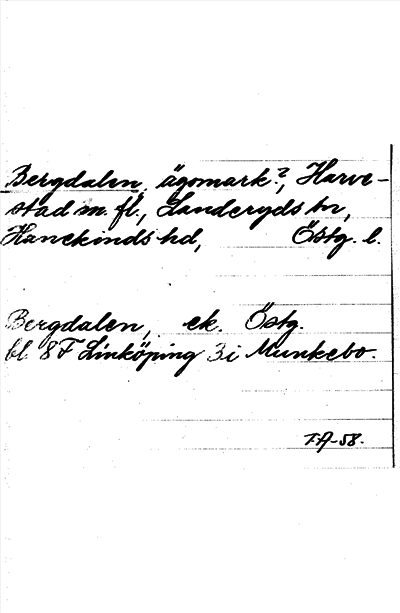 Bergdalen, ägomark?, Harve-
stad m. fl., Landeryds sn,
Hanekinds hd, Östg. l.
Bergdalen, ek. Östg.
bl. 8F Linköping 3i Munkebo.
F.A-58.